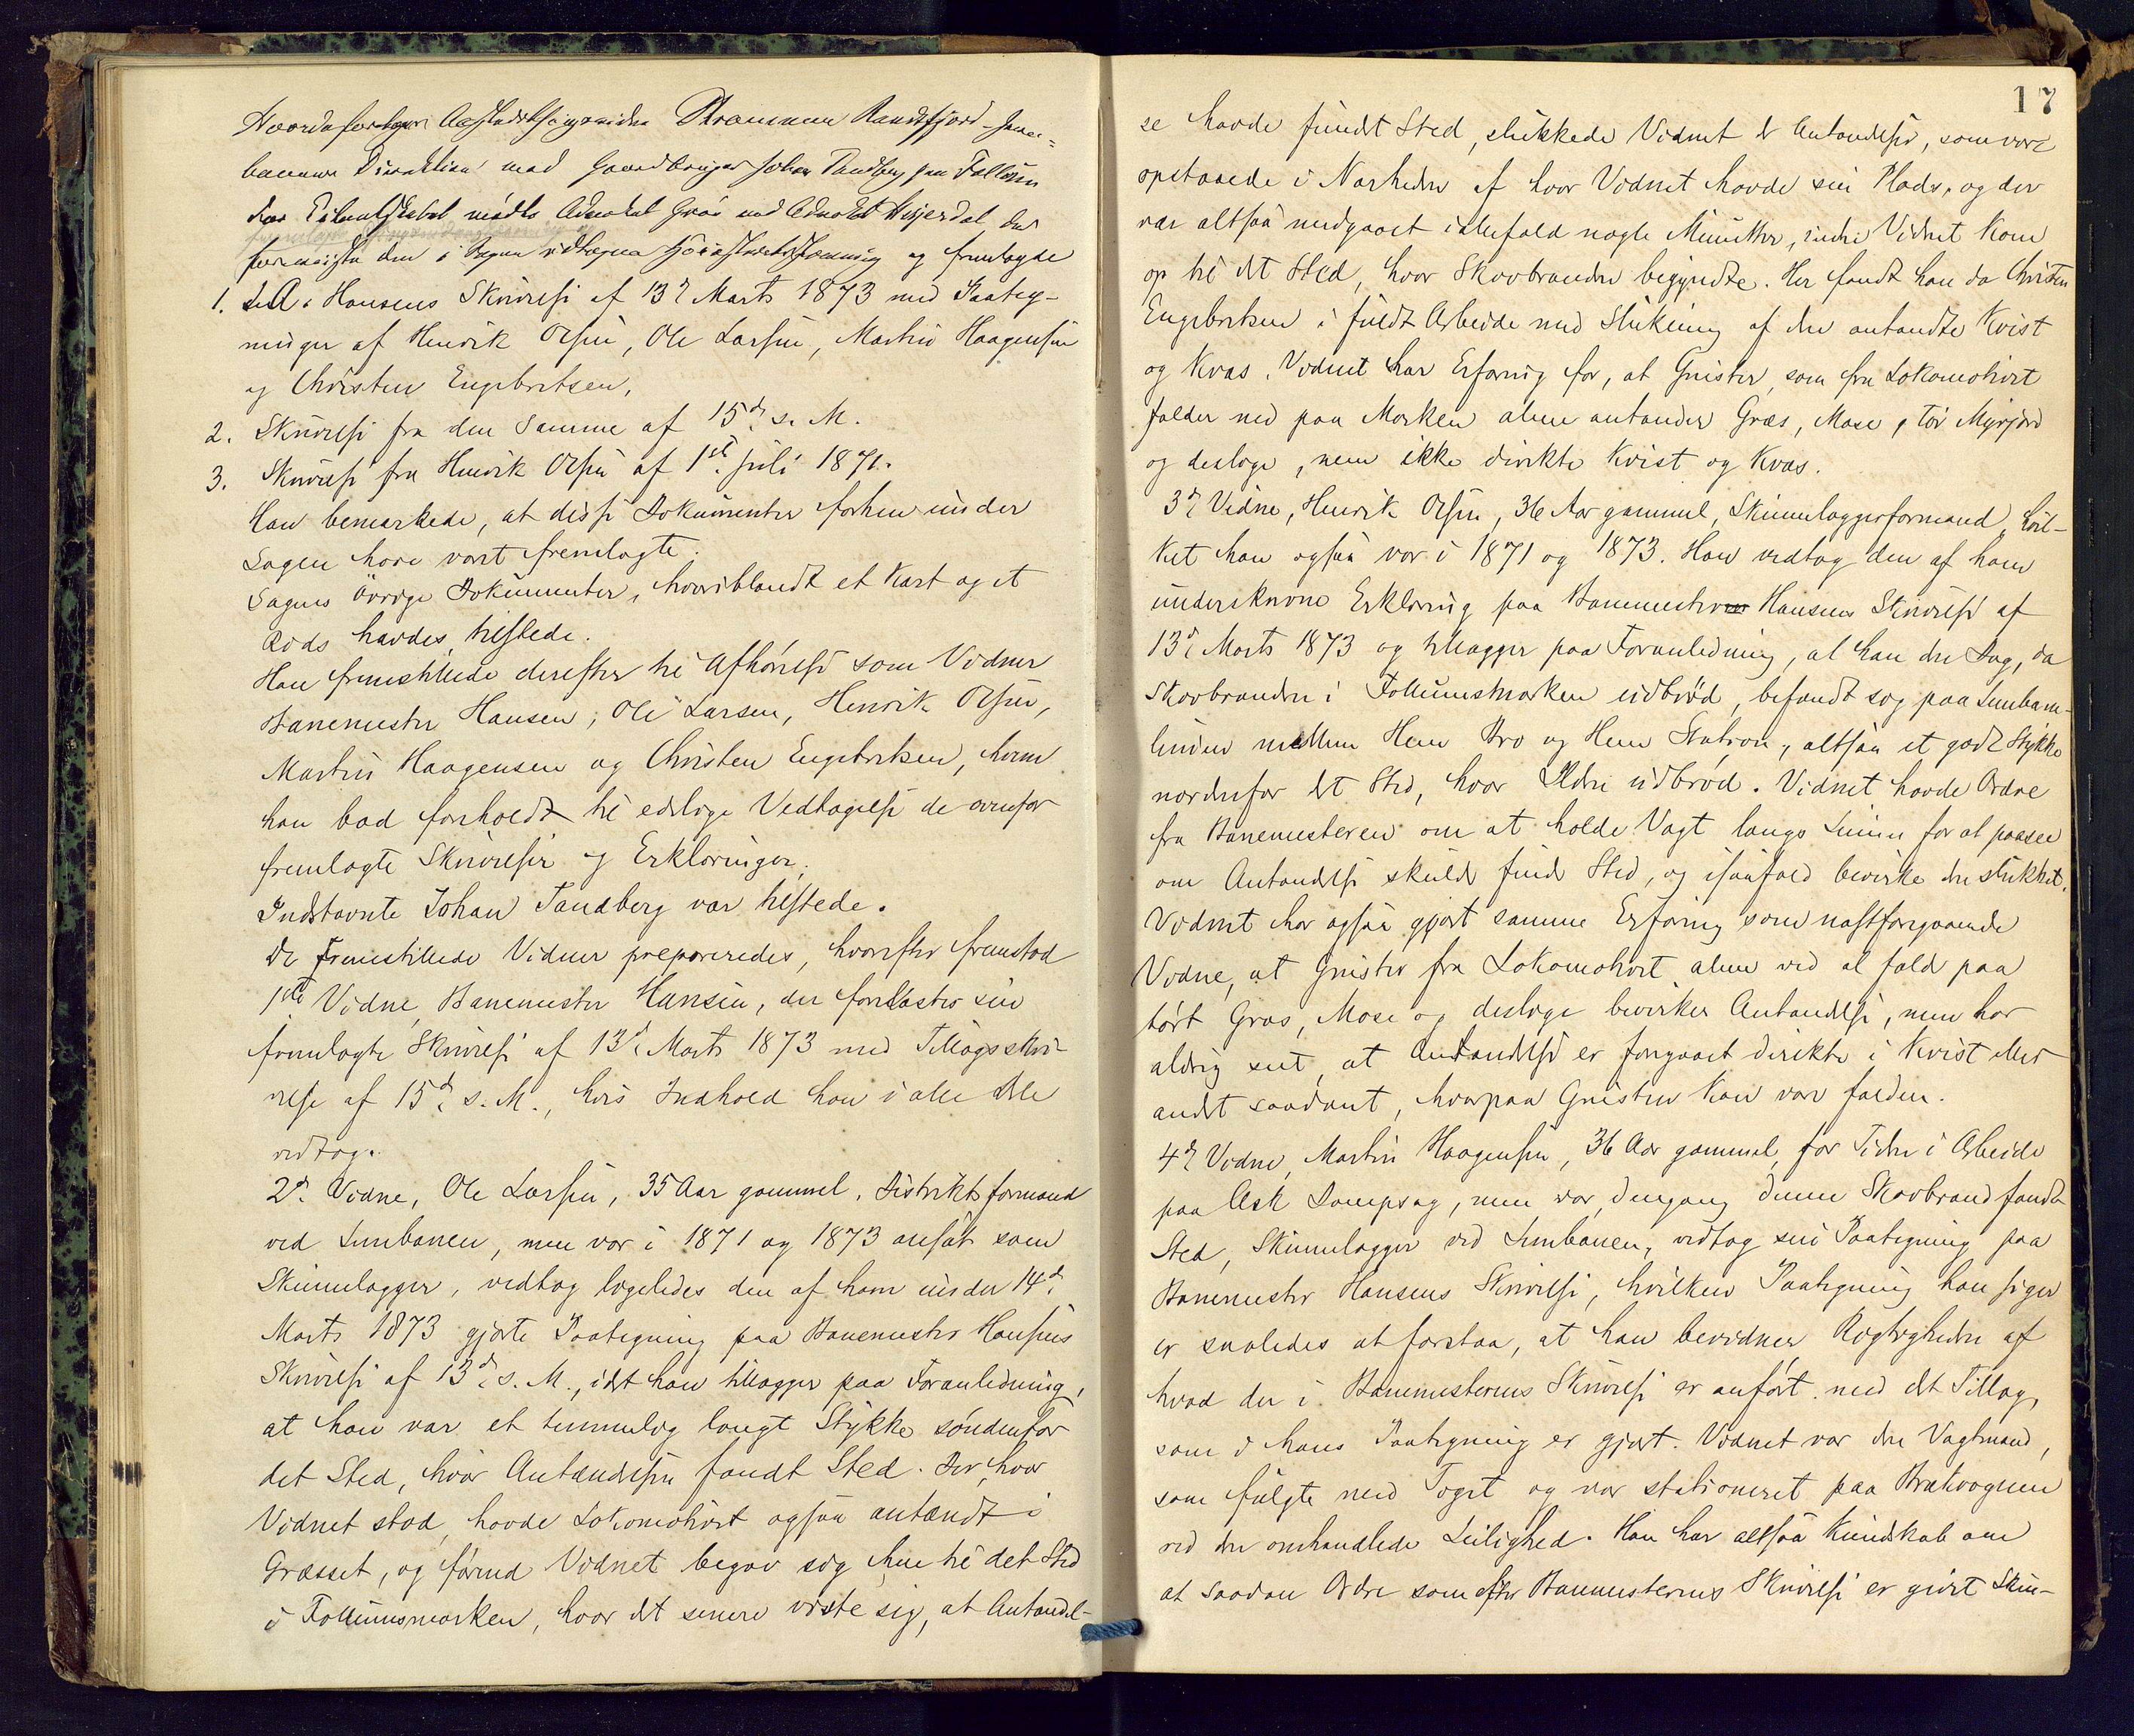 Hvorda foretoges Aastedsthingsviden Drammen Randsfjord-Jern=
banens Direktion mod Gaardbruger Johan Tandberg paa Follum
For Citantskabet mødte Advokat Grøn ved Advokat Hesjerdal, der
fremlagde den i Sagen udtagne Høiestæretsstævning og fremlagde
1. L. A. Hansens Skrivelse af 13de Marts 1873 med Paateg-
ninger af Henrik Olsen, Ole Larsen, Martin Haagensen
og Christen Engebretsen,
2. Skrivelse fra den Samme af 15de s. M.
3. Skrivelse fra Henrik Olsen af 1ste Juli 1871.
Han bemærkede, at disse Dokumenter forhen under
Sagen have vært fremlagte.
Sagens øvrige Dokumenter, hvoriblandt et Kart og et
Rids havdes tilstede.
Han fremstillede derefter til Afhørelse som Vidner
Banemester Hansen, Ole Larsen, Henrik Olsen,
Martin Haagensen og Christen Engebretsen, hvem
han bad forholdt til edelige Vedtagelse de ovenfor
fremlagte Skrivelser og Erklæringer.
Indstevnte Johan Tandberg var tilstede.
De fremstillede Vidner præpareredes, hvorefter fremstod
1ste Vidne, Banemester Hansen, der forelæstes sin
fremlagte Skrivelse af 13de Marts 1873 med Tillægsskri-
velse af 15de s. M., hvis Indhold han i alle Dele
vedtog.
2det Vidne, Ole Larsen, 35 Aar gammel, Distriktsformand
ved Jernbanen, men var i 1871 og 1873 ansat som
Skinnelægger, vedtog ligeledes den af ham under 14de
Marts 1873 gjorte Paategning paa Banemester Hansens
Skrivelse af 13de s. M., idet han tillægger paa Foranledning,
at han var et temmelig langt Stykke søndenfor
det Sted, hvor Antændelsen fandt Sted. Der, hvor
Vidnet stod, havde Lokomotivet ogsaa antændt i
Græsset, og førend Vidnet begav sig hen til det Sted
i Follumsmarken, hvor det senere viste sig, at Antændel-
17
se havde fundet Sted, slukkede Vidnet de Antændelser, som vare
opstaaede i Nærheden af hvor Vidnet havde sin Plads, og der
var altsaa medgaaet iallefald nogle Minutter, inden Vidnet kom
op til det Sted, hvor Skovbranden begyndte. Her fandt han da Christen
Engebretsen i fuldt Arbeide med Slukning af den antændte Kvist
og Kvas. Vidnet har Erfaring for, at Gnister, som fra Lokomotivet
falder ned paa Marken alene antænder Græs, Mose og tør Myrjord
og deslige, men ikke direkte Kvist og Kvas.
3de Vidne, Henrik Olsen, 36 Aar gammel, Skinnelæggerformand, hvil-
ket han ogsaa var i 1871 og 1873. Han vedtog den af ham
underskrevne Erklæring paa Banemester Hansens Skrivelse af
13de Marts 1873 og tillægger paa Foranledning, at han den Dag, da
Skovbranden i Follumsmarken udbrød, befandt sig paa Jernbane-
linien mellem Hen Bro og Hen Station, altsaa et godt Stykke
nordenfor det Sted, hvor Ilden udbrød. Vidnet havde Ordre
fra Banemesteren om at holde Vagt langs Linien for at paasee
om Antændelse skulde finde Sted, og isaafald bevirke den slukket.
Vidnet har ogsaa gjort samme Erfaring som næstforegaaende
Vidne, at Gnister fra Lokomotivet alene ved at falde paa
tørt Græs, Mose og deslige bevirker Antændelse, men har
aldrig seet, at Antændelse er foregaaet direkte i Kvist eller
andet saadant, hvorpaa Gnisten kan være falden.
4de Vidne, Martin Haagensen, 36 Aar gammel, for Tiden i Arbeide
paa Ask Dampsag, men var, dengang denne Skovbrand fandt
Sted, Skinnelægger ved Jernbanen, vedtog sin Paategning paa
Banemester Hansens Skrivelse, hvilken Paategning han siger
er saaledes at forstaa, at han bevidner Rigtigheden af
hvad der i Banemesterens Skrivelse er anført med det Tillæg,
som i hans Paategning er gjort. Vidnet var den Vagtmand,
som fulgte med Toget og var stationeret paa Brækvognen
ved den omhandlede Leilighed. Han har altsaa Kundskab om
at saadan Ordre som efter Banemesterens Skrivelse er givet Skin-